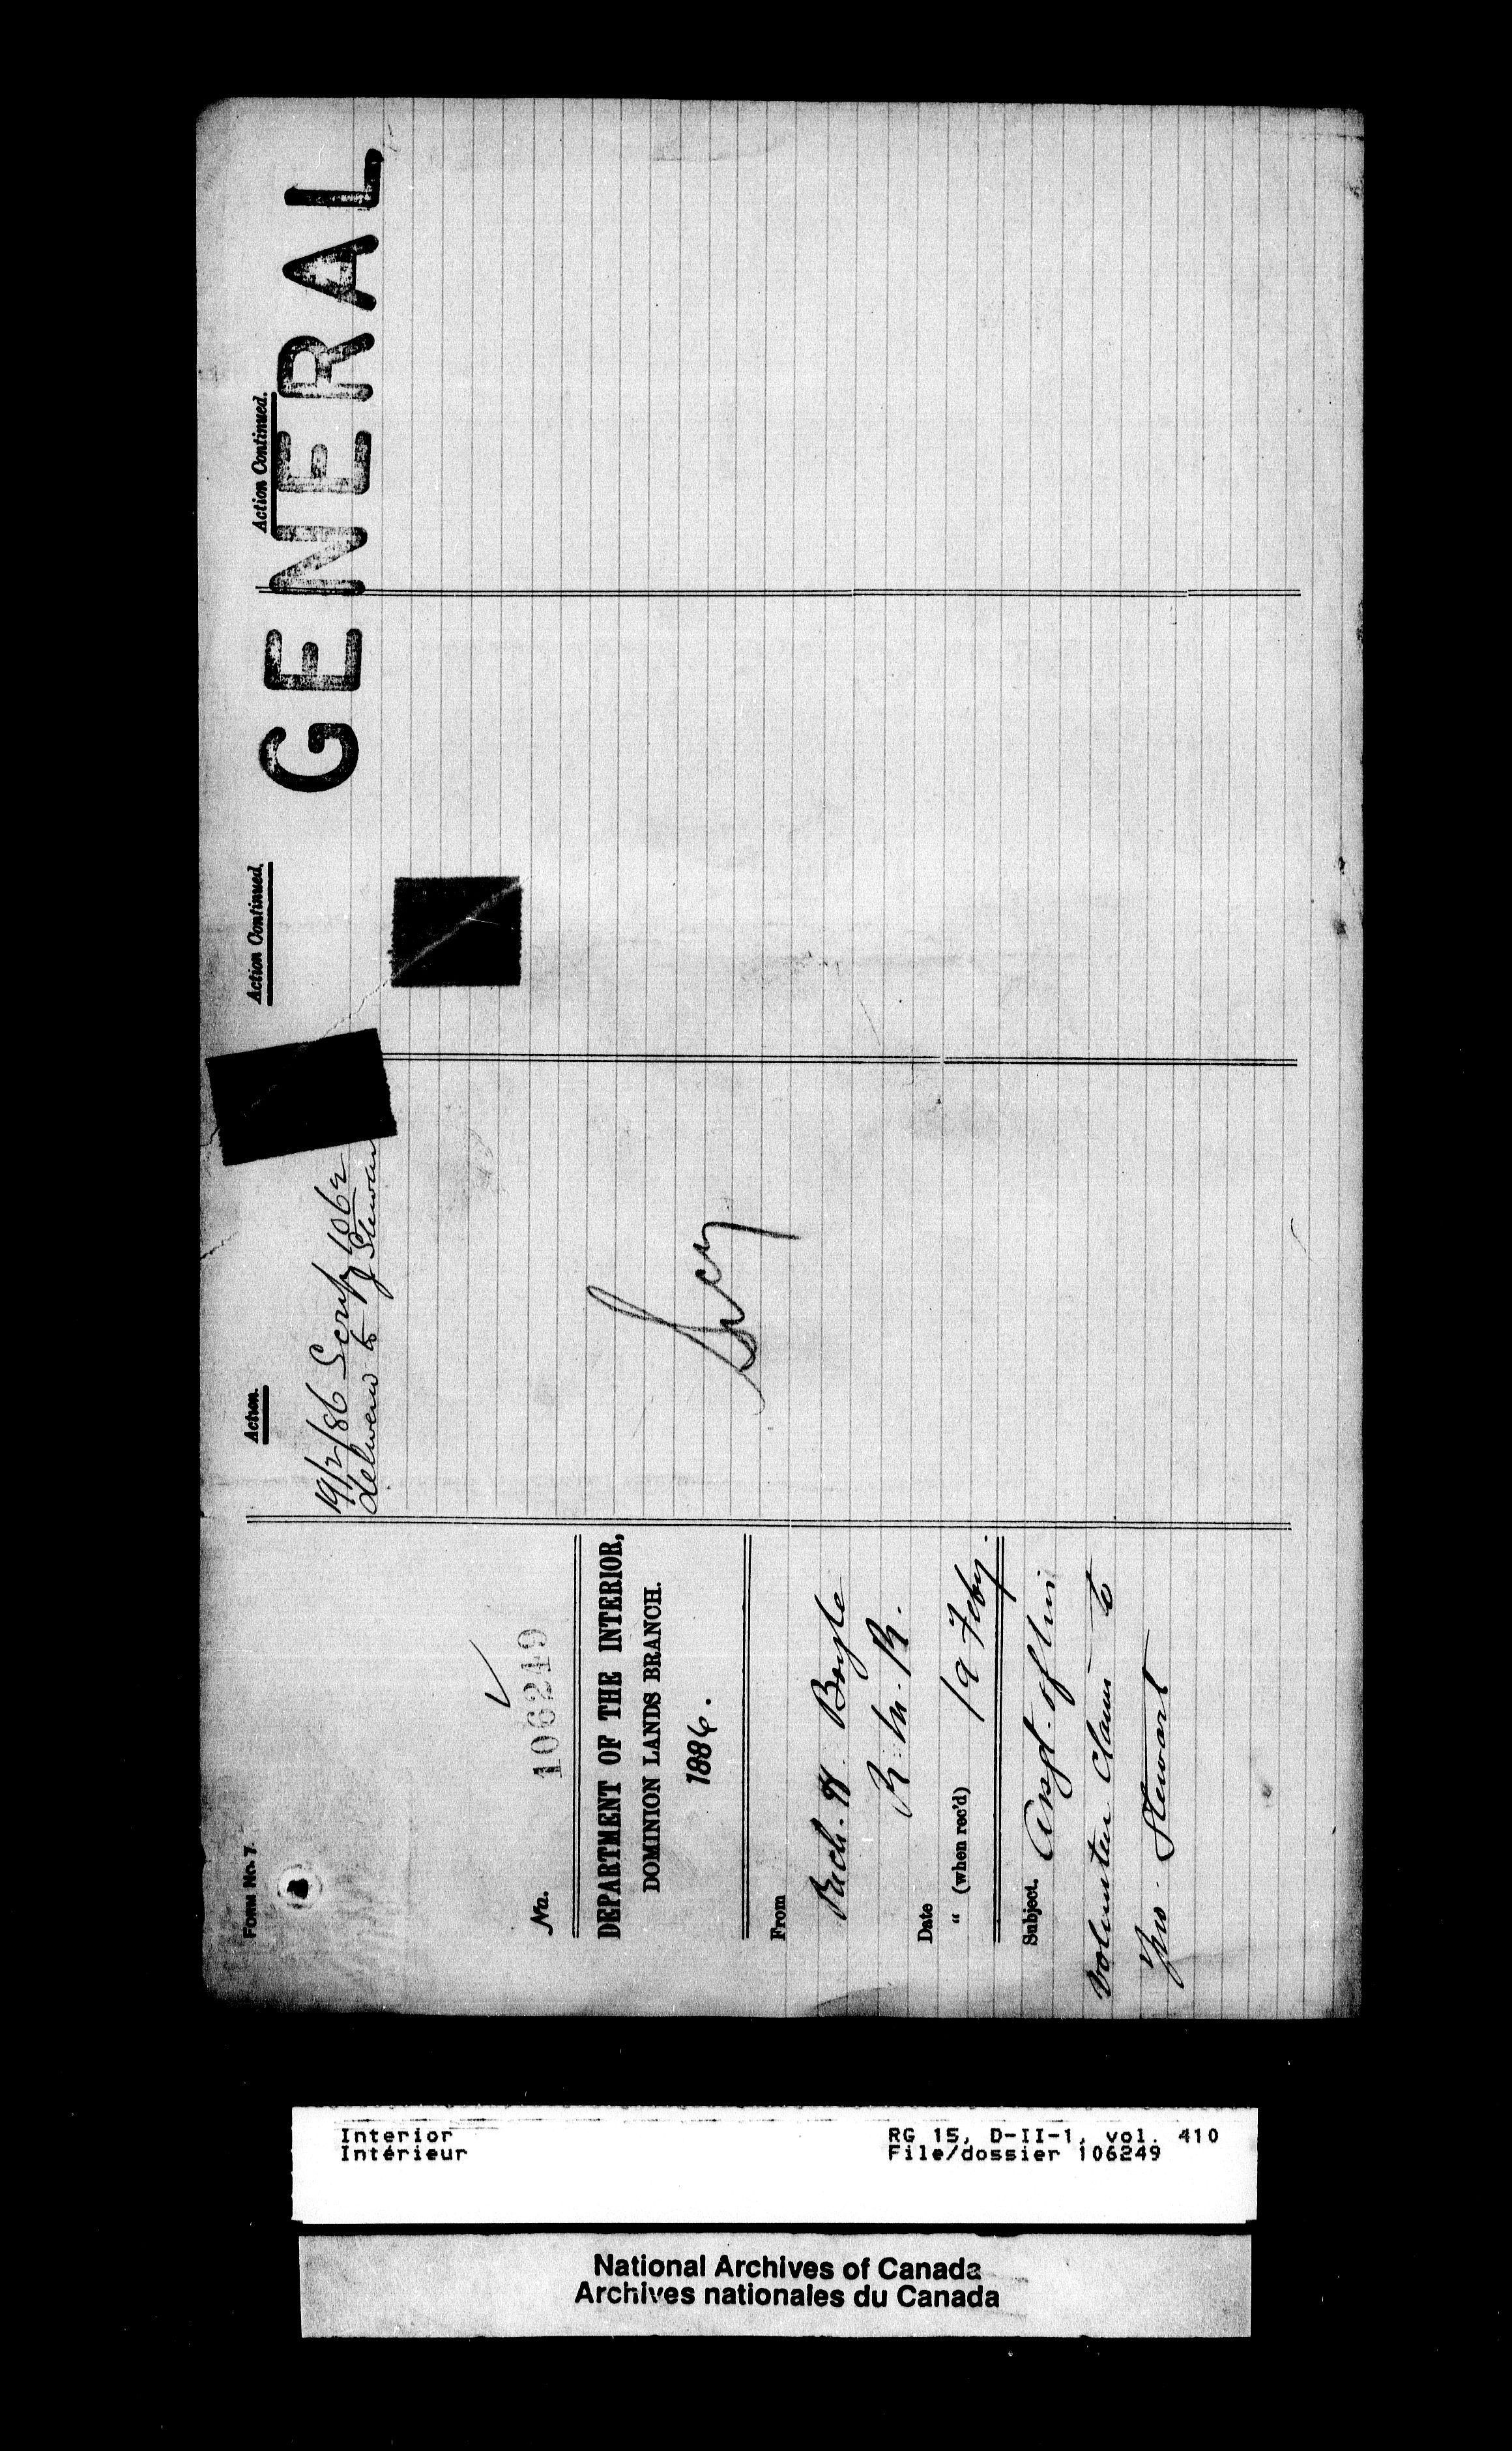 FORM No. 7.
No. 106249
DEPARTMENT OF THE INTERIOR,
DOMINION LANDS BRANCH.
1886.
From
Rich. H. Boyle
R. M. R.
Date
" (when rec'd) 19 Feby.
Subject. Asgt. of his
Volunteer Claim to
Jno. Stewart
Action.
19/2/86 Scrip 1062
delivered to J Stewart
Action Continued.
Action Continued.
GENERAL
Interior
Intérieur
RG 15, D-II-1, vol. 410
File/dossier 106249
National Archives of Canada
Archives nationales du Canada